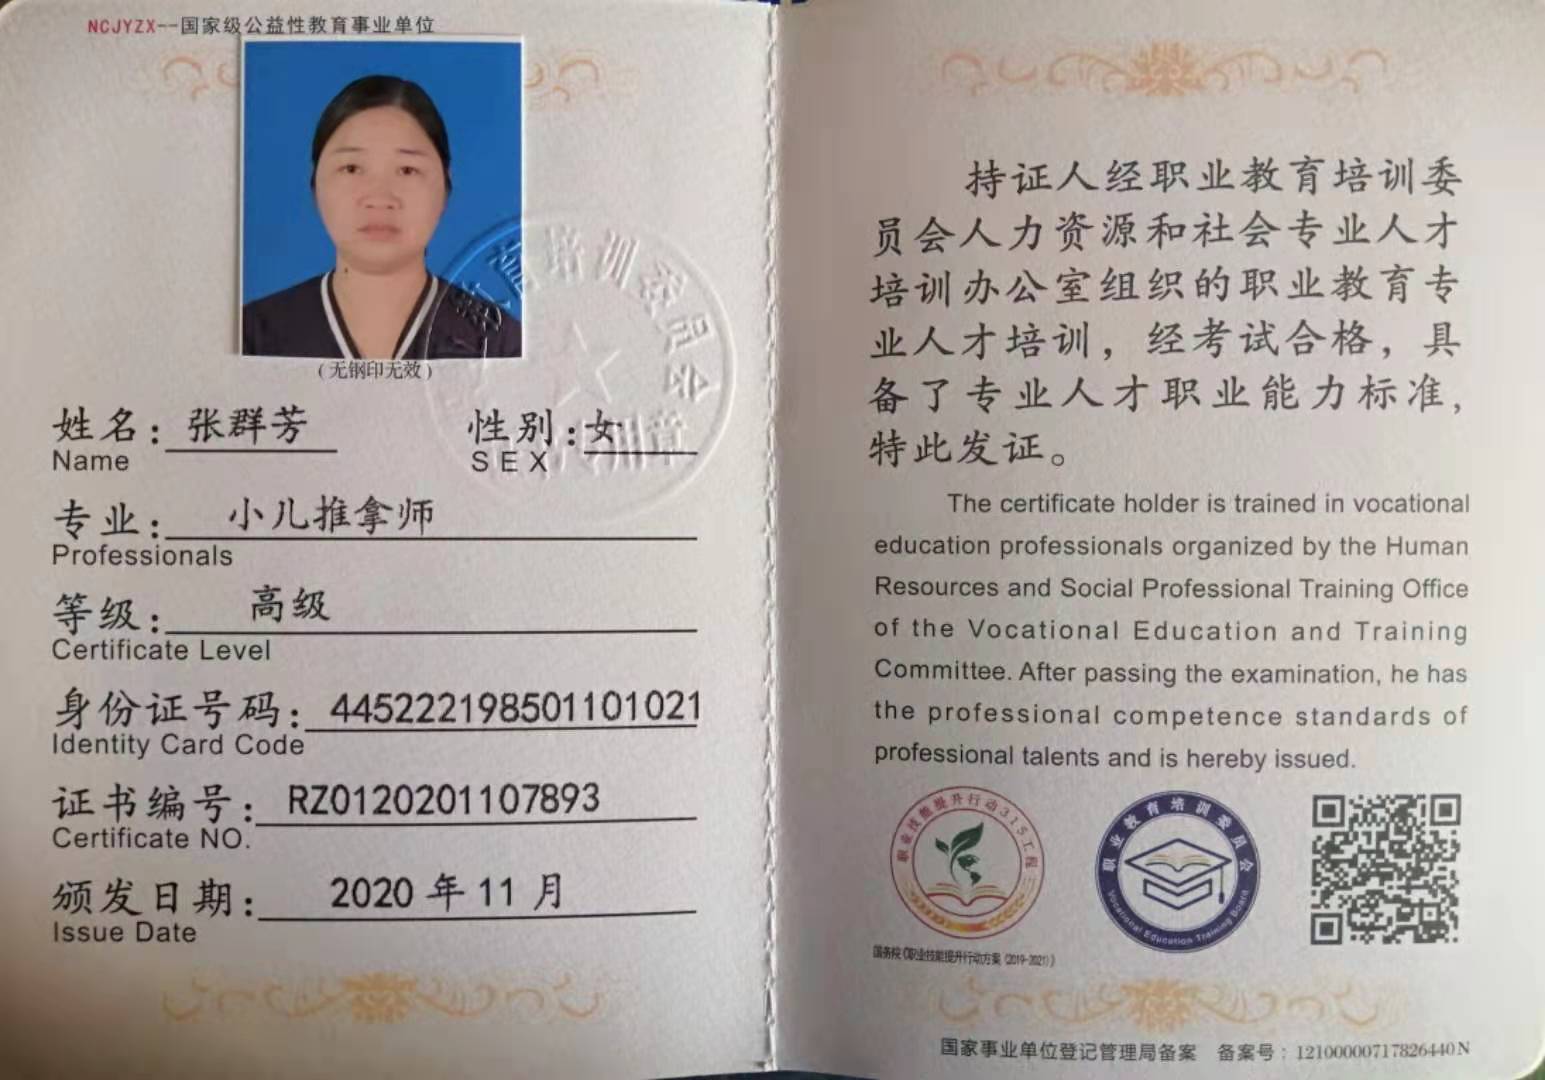 NCJYZX--国家级公益性教育事业单位
(无钢印无效)
姓名：张群芳 性别：女
Name SEX
专业：小儿推拿师
Professionals
等级：高级
Certificate Level
身份证号码：445222198501101021
Identity Card Code
证书编号：RZ0120201107893
Certificate NO.
颁发日期：2020 年 11 月
Issue Date
教育培训委员会
持证人经职业教育培训委
员会人力资源和社会专业人才
培训办公室组织的职业教育专
业人才培训，经考试合格，具
备了专业人才职业能力标准，
特此发证。
The certificate holder is trained in vocational
education professionals organized by the Human
Resources and Social Professional Training Office
of the Vocational Education and Training
Committee. After passing the examination, he has
the professional competence standards of
professional talents and is hereby issued.
职业技能提升行动315工程
职业教育培训委员会
Vocational Education Training Board
国务院《职业技能提升行动方案（2019-2021）》
国家事业单位登记管理局备案 备案号：12100000717826440N